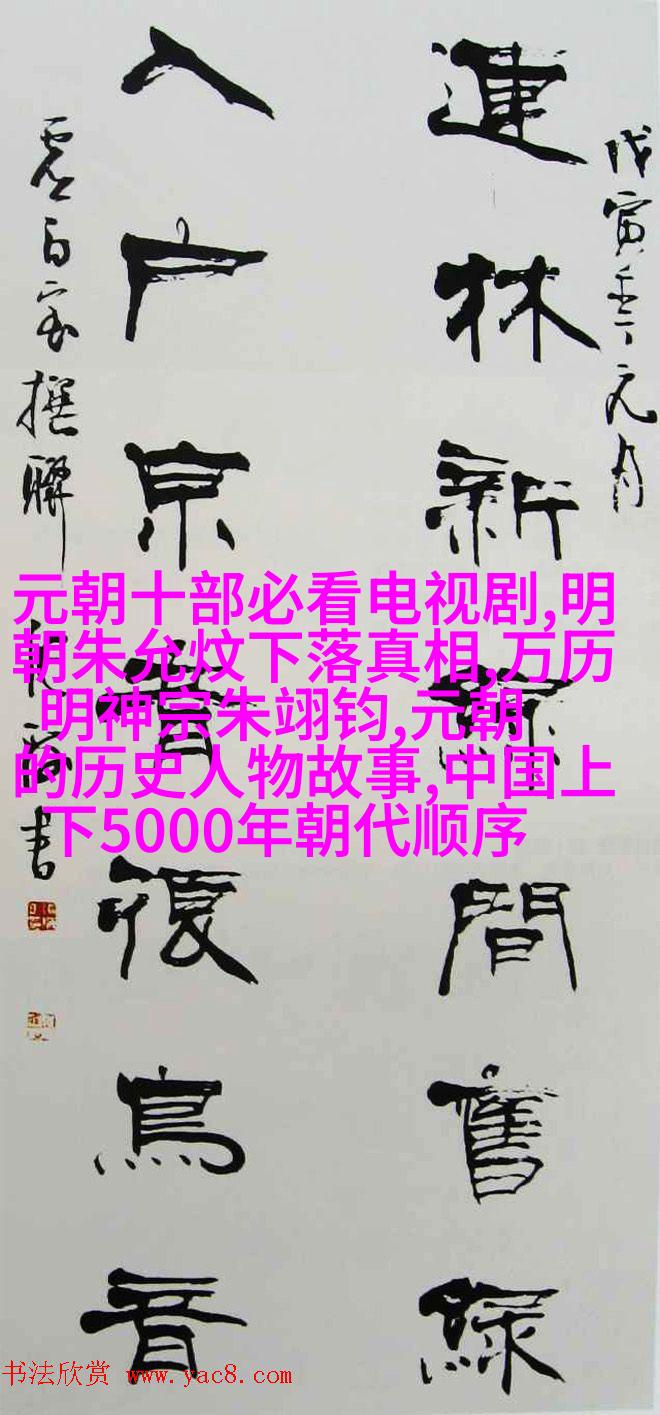 戊寅年元月
連林新綠間舊綠
入戶京音復鳥音
撰聯 書
元朝十部必看电视剧,明
朝朱允炆下落真相,万历
明神宗朱翊钧,元朝
的历史人物故事,中国上
下5000年朝代顺序
书法欣赏 www.yac8.com